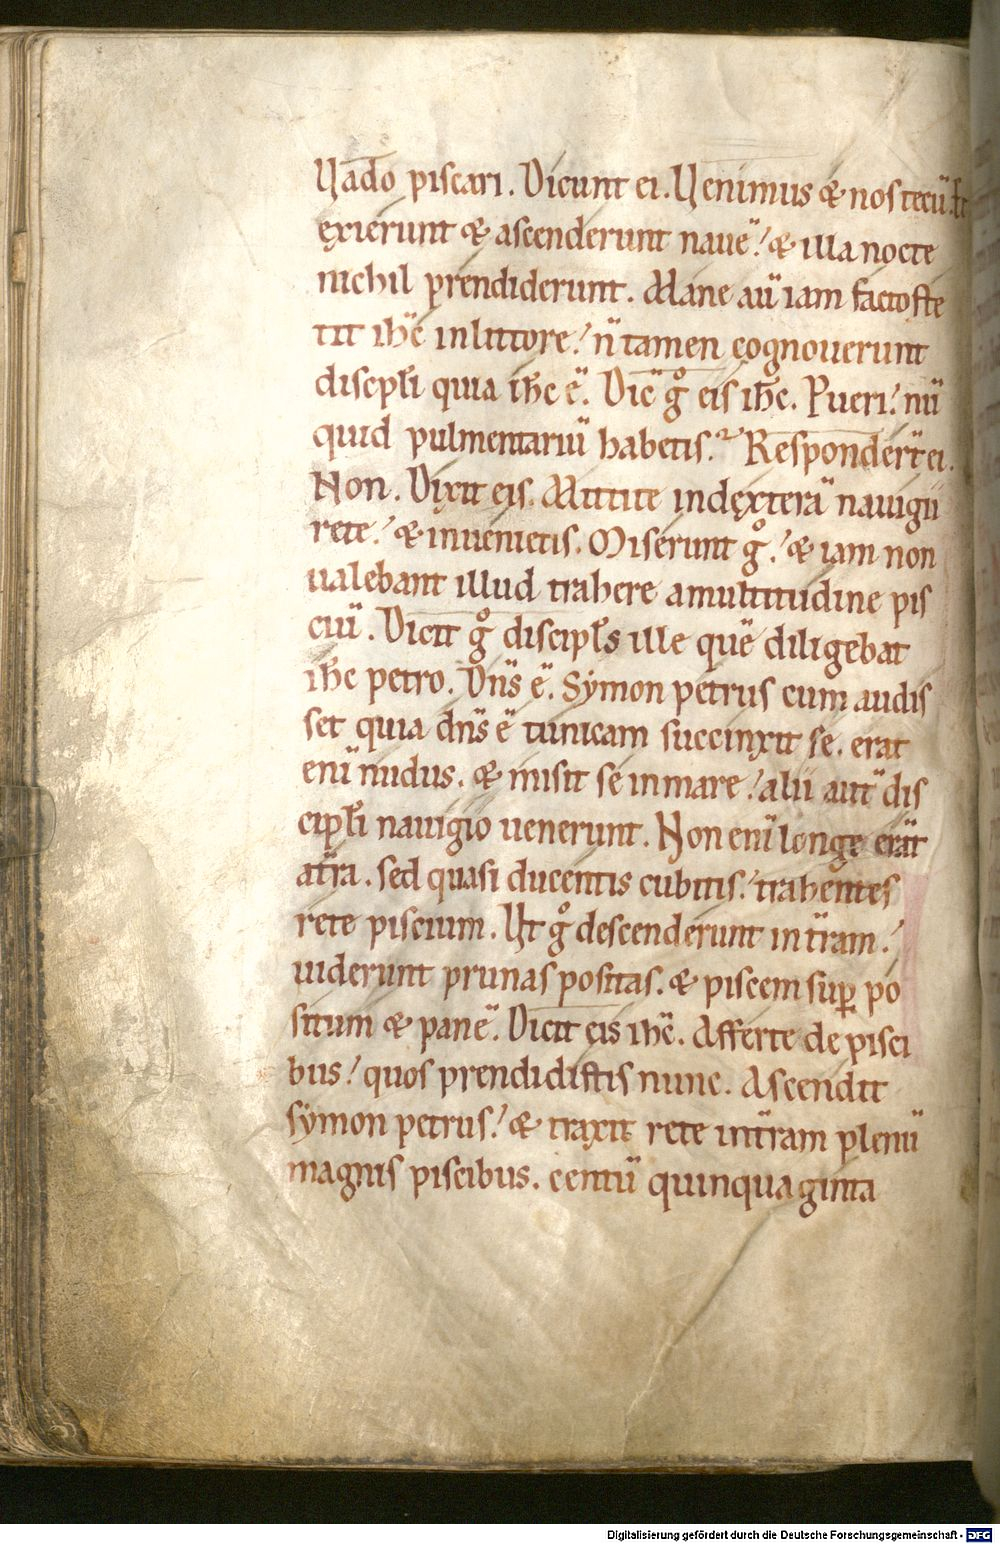 Uado piscari. Dicunt ei. Uenimus & nos tecū. Et
exierunt & ascenderunt nauē! & illa nocte
nichil prendiderunt. Mane aū iam facto ste
tit ihc̄ in littore! n̄ tamen cognouerunt
discipl̄i quia ihc̄ ē. Dic̄ gͦ eis ihc̄. Pueri! nū
quid pulmentariū habetis? Respondert̄ ei.
Non. Dixit eis. Mittite in dexterā nauigii
rete! & inuenietis. Miserunt gͦ! & iam non
ualebant illud trahere a multitudine pis
ciū. Dicit gͦ discipl̄s ille quē diligebat
ihc̄ petro. Dn̄s ē. Symon petrus cum audis
set quia dn̄s ē tunicam succinxit se. erat
enī nudus. & misit se in mare! alii aut̄ dis
cipl̄i nauigio uenerunt. Non enī longe erāt
a tr̄a. sed quasi ducentis cubitis! trahentes
rete piscium. Ut gͦ descenderunt in tr̄am!
uiderunt prunas positas. & piscem sup̄ po
situm & panē. Dicit eis ihc̄. Afferte de pisci
bus! quos prendidistis nunc. Ascendit
symon petrus! & traxit rete in tr̄am plenū
magnis piscibus. centū quinquaginta
Digitalisierung gefördert durch die Deutsche Forschungsgemeinschaft - DFG